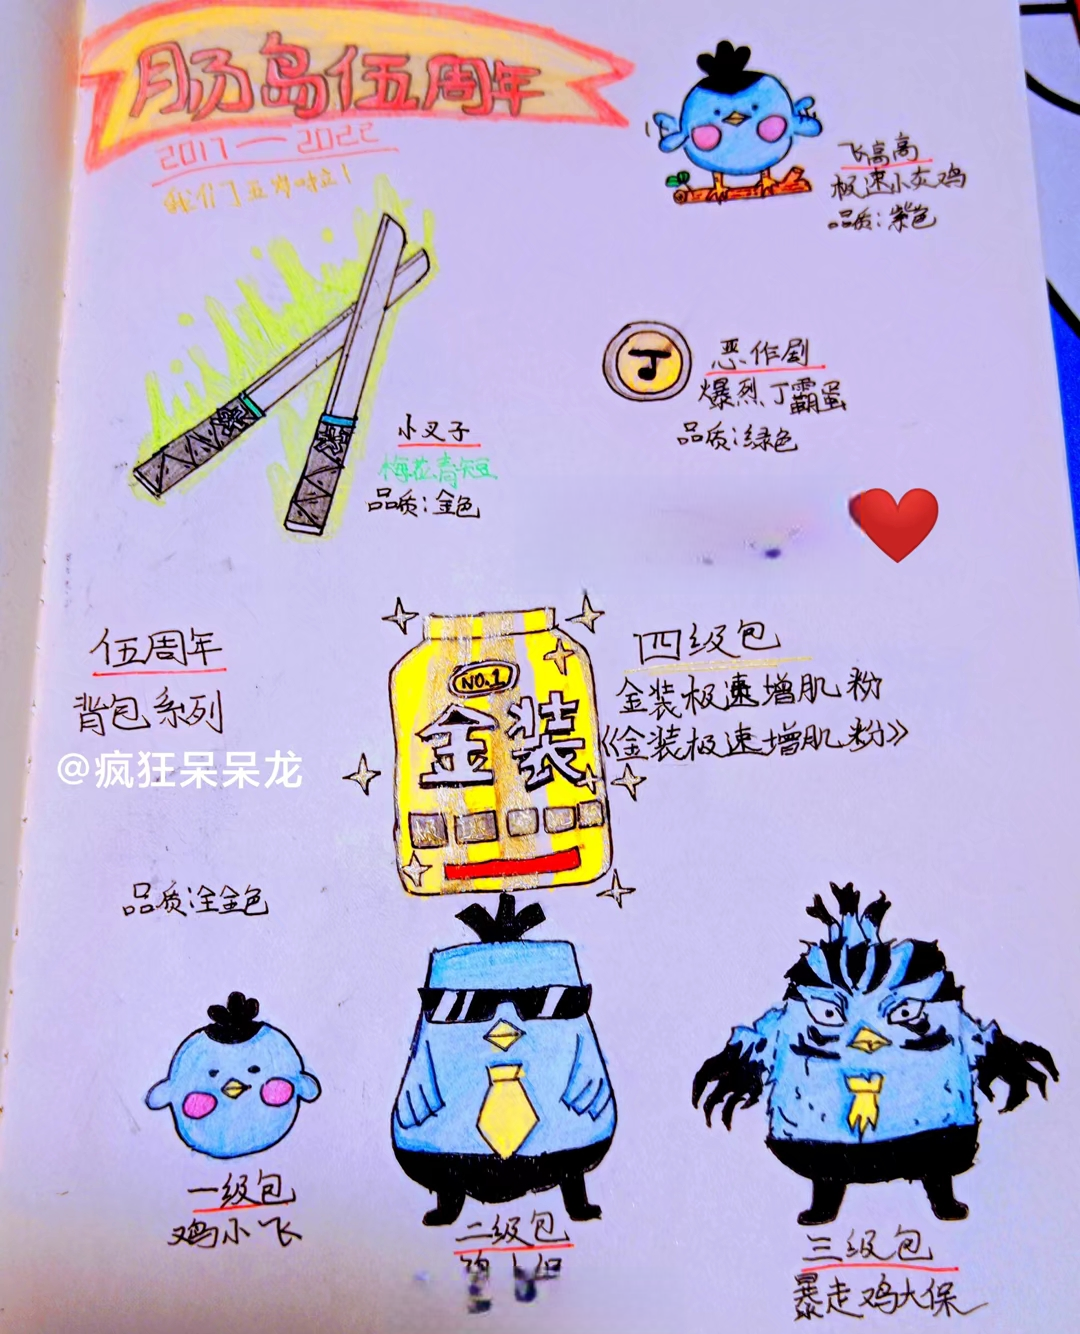 肠岛伍周年
2017—2022
我们五岁啦！
飞高高
极速小灰鸡
品质:紫色
丁
恶作剧
爆烈丁霸蛋
品质:绿色
小叉子
梅花青短
品质:金色
伍周年
背包系列
@疯狂呆呆龙
品质:全金色
NO.1
金装
四级包
金装极速增肌粉
《金装极速增肌粉》
一级包
鸡小飞
二级包
三级包
暴走鸡大保